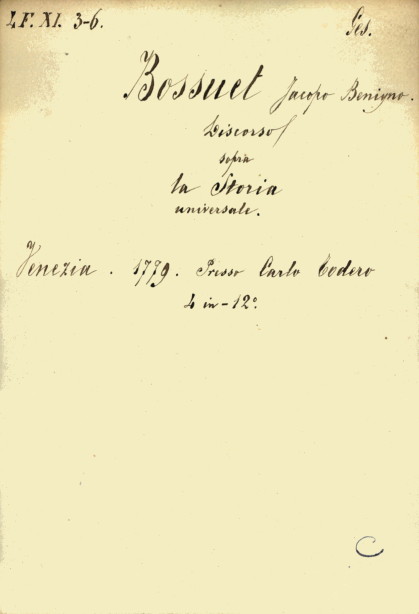 LF. XI. 3-6. Ges.
Bossuet Jacopo Benigno.
Discorso
sopra
la Storia
universale.
Venezia. 1779. Presso Carlo Todero
4 in-12°.
C